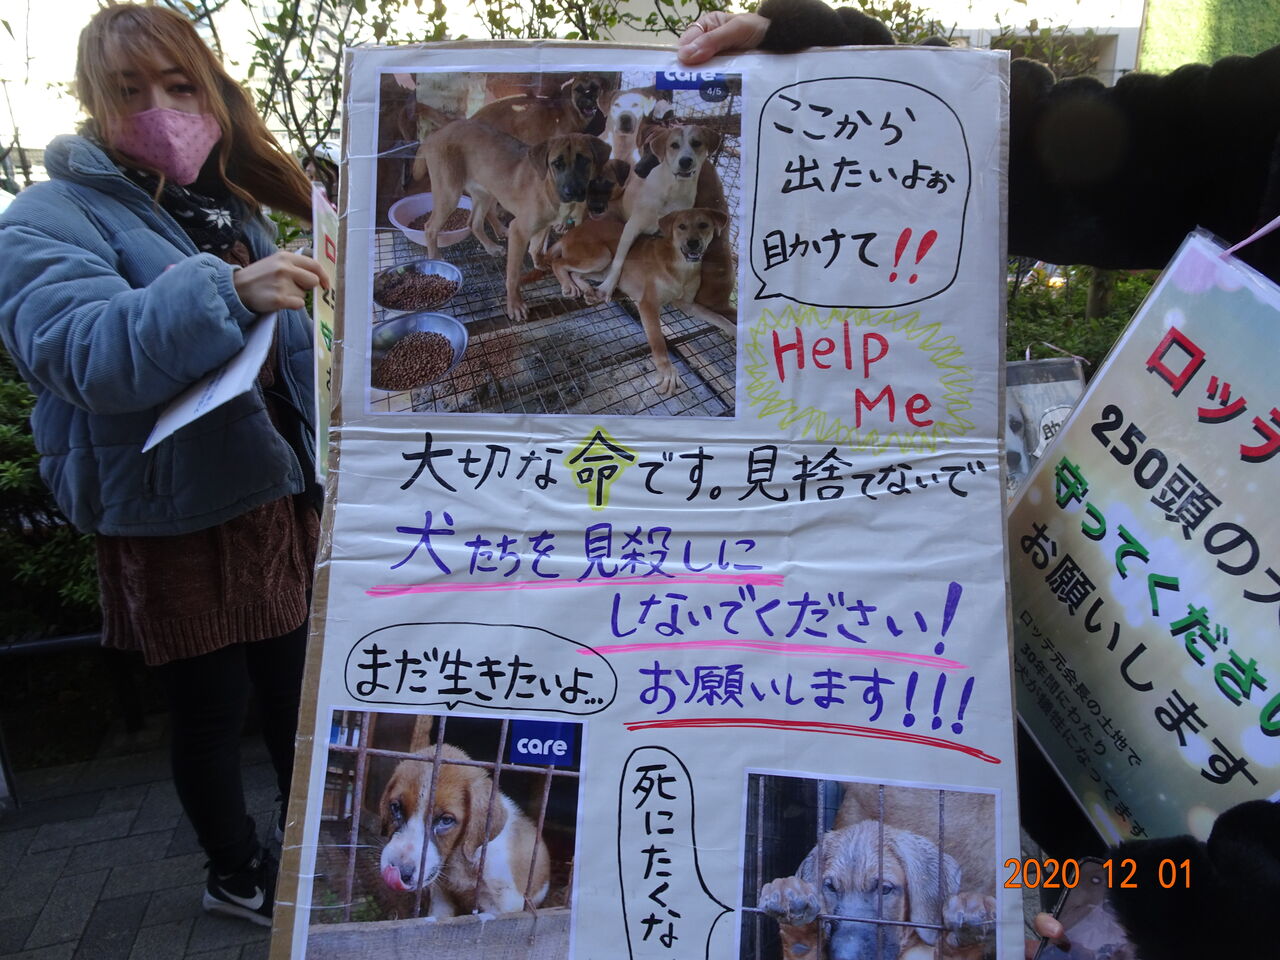 care
4/5
ここから
出たいよぉ
助けて!!
Help
Me
大切な命です。見捨てないで
犬たちを見殺しに
しないでください!
お願いします!!!
まだ生きたいよ...
care
死にたくな
ロッテ
250頭の犬
守ってください
お願いします
ロッテ元会長の土地で
30年間にわたり
犬が犠牲になってます
2020 12 01